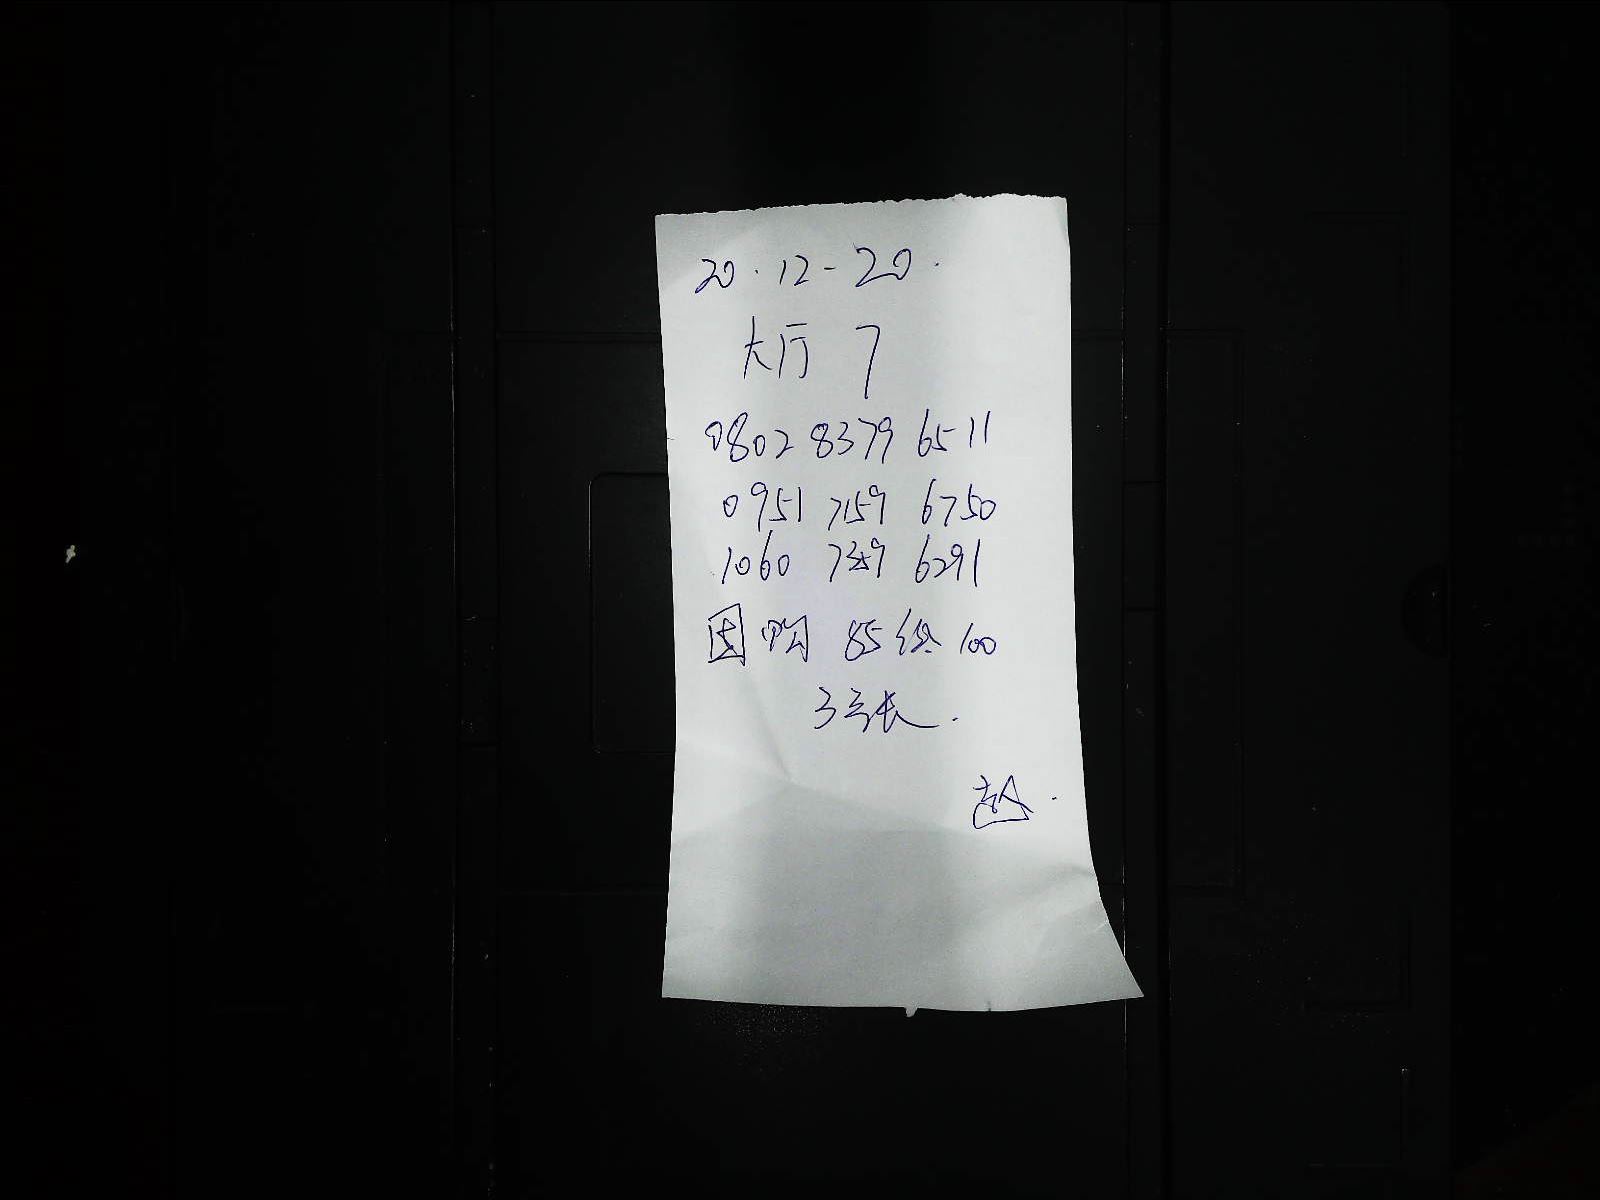 20.12-20.
大厅 7
0802 8379 6511
0951 7159 6750
1060 7359 6291
团购 85代100
3张.
赵.